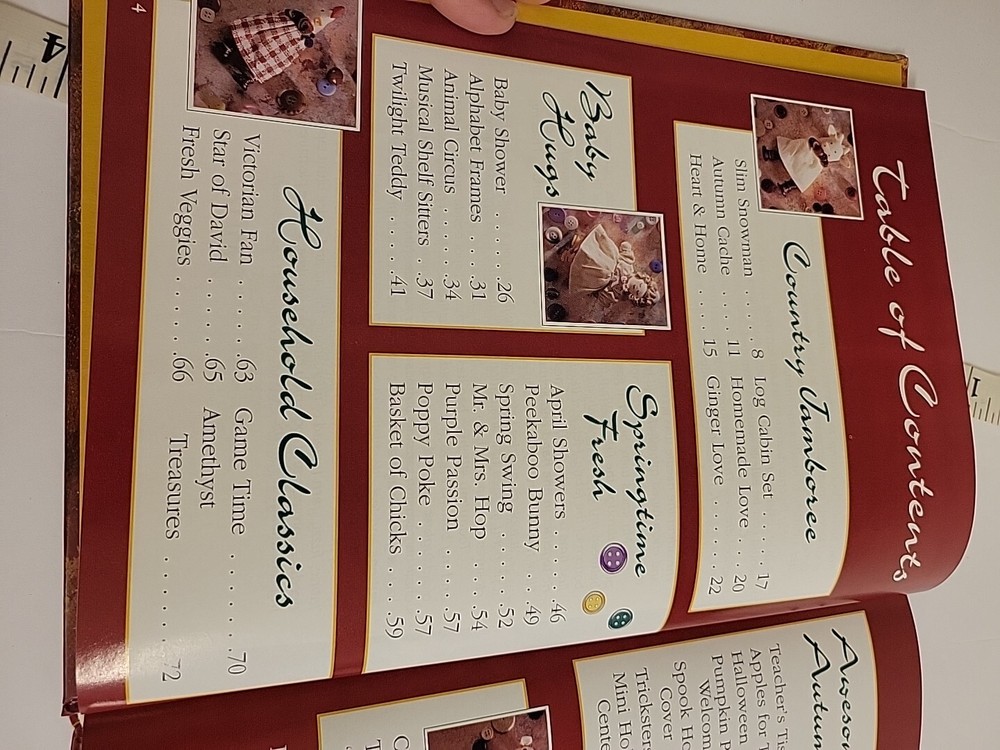 Table of Contents
Country Jamboree
Slim Snowman . . . . . . 8
Autumn Cache . . . . . 11
Heart & Home . . . . 15
Log Cabin Set . . . . . 17
Homemade Love . . . 20
Ginger Love . . . . . . 22
Baby
Hugs
Baby Shower . . . . . . .26
Alphabet Frames . . . .31
Animal Circus . . . . . .34
Musical Shelf Sitters . .37
Twilight Teddy . . . . 41
Springtime
Fresh
April Showers . . . . .46
Peekaboo Bunny . . .49
Spring Swing . . . . . .52
Mr. & Mrs. Hop . . . .54
Purple Passion . . . . .57
Poppy Poke . . . . . . .57
Basket of Chicks . . . .59
Household Classics
Victorian Fan . . . . . .63
Star of David . . . . . .65
Fresh Veggies . . . . . .66
Game Time . . . . . . . .70
Amethyst
Treasures . . . . . . . .72
4
Teacher's
Apples for
Halloween
Pumpkin
Spook
Cover
Trickster
Mini
4
1